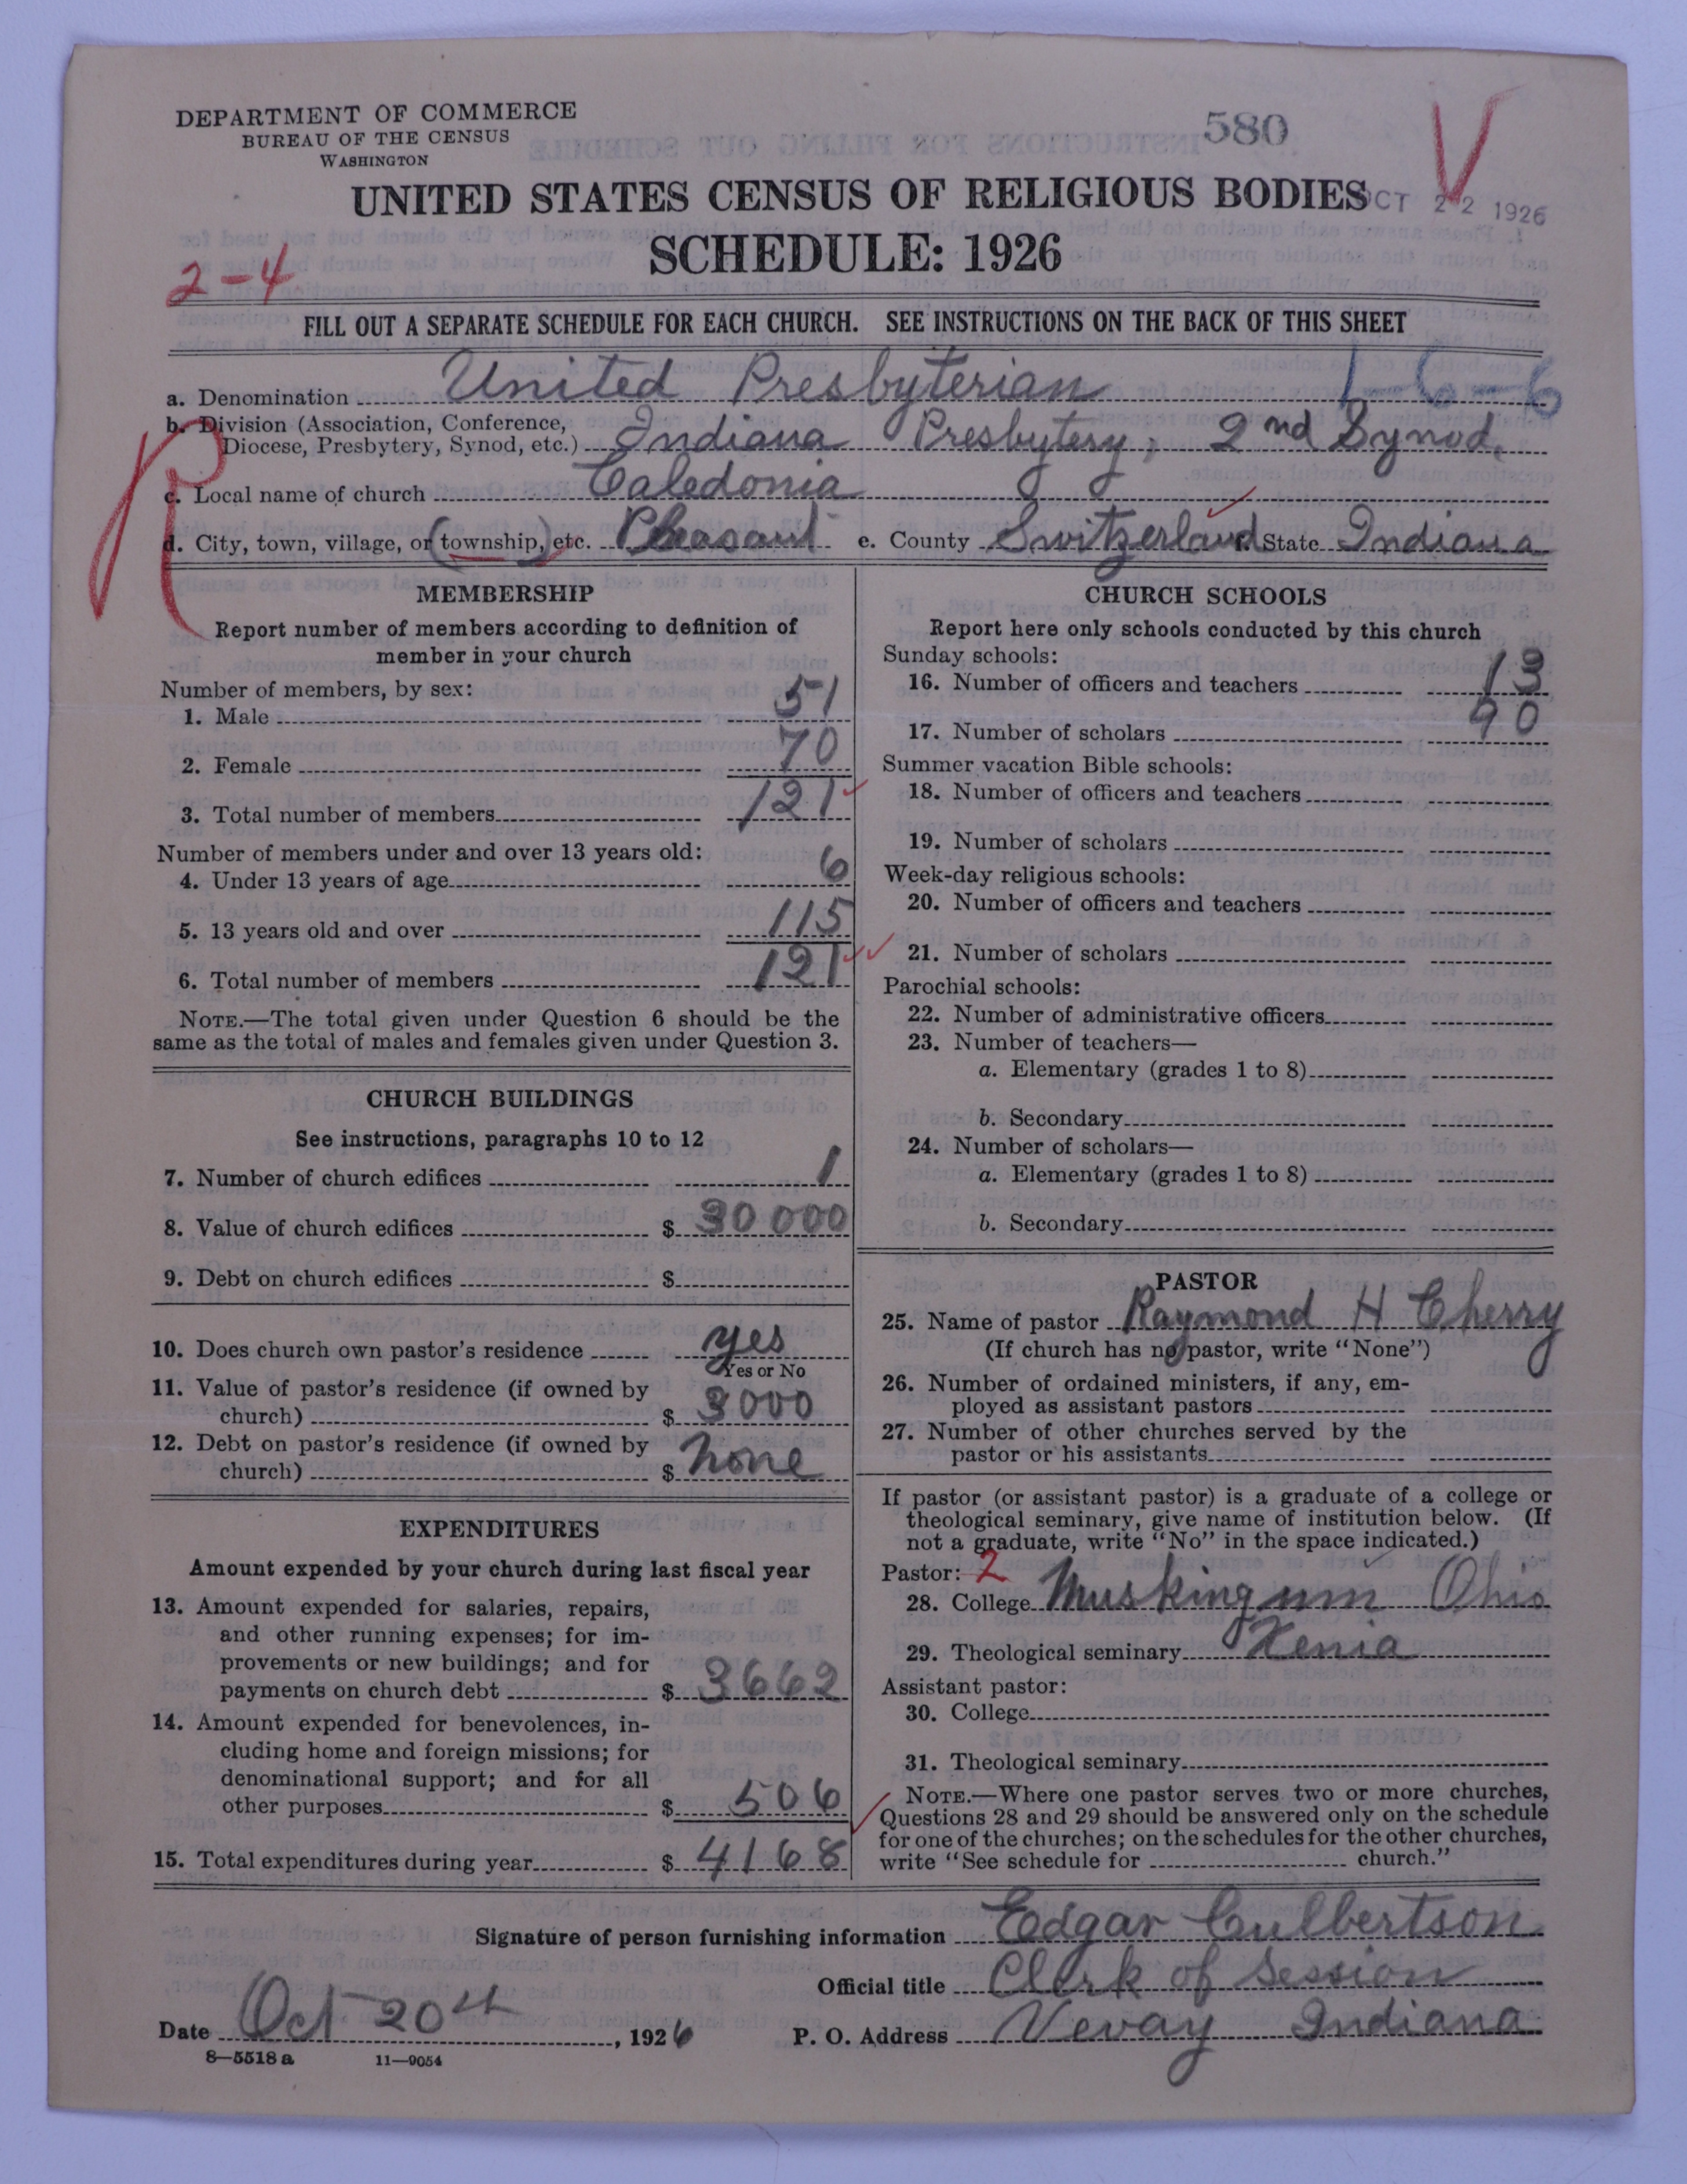 DEPARTMENT OF COMMERCE
BUREAU OF THE CENSUS
WASHINGTON
580
UNITED STATES CENSUS OF RELIGIOUS BODIES
OCT 22 1926
SCHEDULE: 1926
2-4
FILL OUT A SEPARATE SCHEDULE FOR EACH CHURCH. SEE INSTRUCTIONS ON THE BACK OF THIS SHEET
a. Denomination United Presbyterian 1-6-6
b. Division (Association, Conference, Diocese, Presbytery, Synod, etc.) Indiana Presbytery, 2nd Synod,
c. Local name of church Caledonia
d. City, town, village, or (township,) etc. Pleasant e. County Switzerland f. State Indiana
MEMBERSHIP
Report number of members according to definition of
member in your church
Number of members, by sex:
1. Male 51
2. Female 70
3. Total number of members 121
Number of members under and over 13 years old:
4. Under 13 years of age 6
5. 13 years old and over 115
6. Total number of members 121
NOTE.—The total given under Question 6 should be the
same as the total of males and females given under Question 3.
CHURCH BUILDINGS
See instructions, paragraphs 10 to 12
7. Number of church edifices 1
8. Value of church edifices $ 30000
9. Debt on church edifices $
10. Does church own pastor's residence yes
Yes or No
11. Value of pastor's residence (if owned by
church) $ 3000
12. Debt on pastor's residence (if owned by
church) $ none
EXPENDITURES
Amount expended by your church during last fiscal year
13. Amount expended for salaries, repairs,
and other running expenses; for im-
provements or new buildings; and for
payments on church debt $ 3662
14. Amount expended for benevolences, in-
cluding home and foreign missions; for
denominational support; and for all
other purposes $ 506
15. Total expenditures during year $ 4168
CHURCH SCHOOLS
Report here only schools conducted by this church
Sunday schools:
16. Number of officers and teachers 13
17. Number of scholars 90
Summer vacation Bible schools:
18. Number of officers and teachers
19. Number of scholars
Week-day religious schools:
20. Number of officers and teachers
21. Number of scholars
Parochial schools:
22. Number of administrative officers
23. Number of teachers—
a. Elementary (grades 1 to 8)
b. Secondary
24. Number of scholars—
a. Elementary (grades 1 to 8)
b. Secondary
PASTOR
25. Name of pastor Raymond H Cherry
(If church has no pastor, write "None")
26. Number of ordained ministers, if any, em-
ployed as assistant pastors
27. Number of other churches served by the
pastor or his assistants
If pastor (or assistant pastor) is a graduate of a college or
theological seminary, give name of institution below. (If
not a graduate, write "No" in the space indicated.)
Pastor: 2
28. College Muskingum Ohio
29. Theological seminary Xenia
Assistant pastor:
30. College
31. Theological seminary
NOTE.—Where one pastor serves two or more churches,
Questions 28 and 29 should be answered only on the schedule
for one of the churches; on the schedules for the other churches,
write "See schedule for church."
Signature of person furnishing information Edgar Culbertson
Official title Clerk of Session
Date Oct 20th, 1926 P. O. Address Vevay Indiana
8—5518 a 11—9054